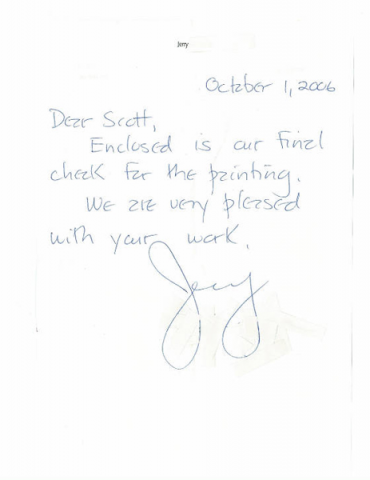 Jerry
October 1, 2006
Dear Scott,
Enclosed is our final
check for the printing.
We are very pleased
with your work.
Jerry